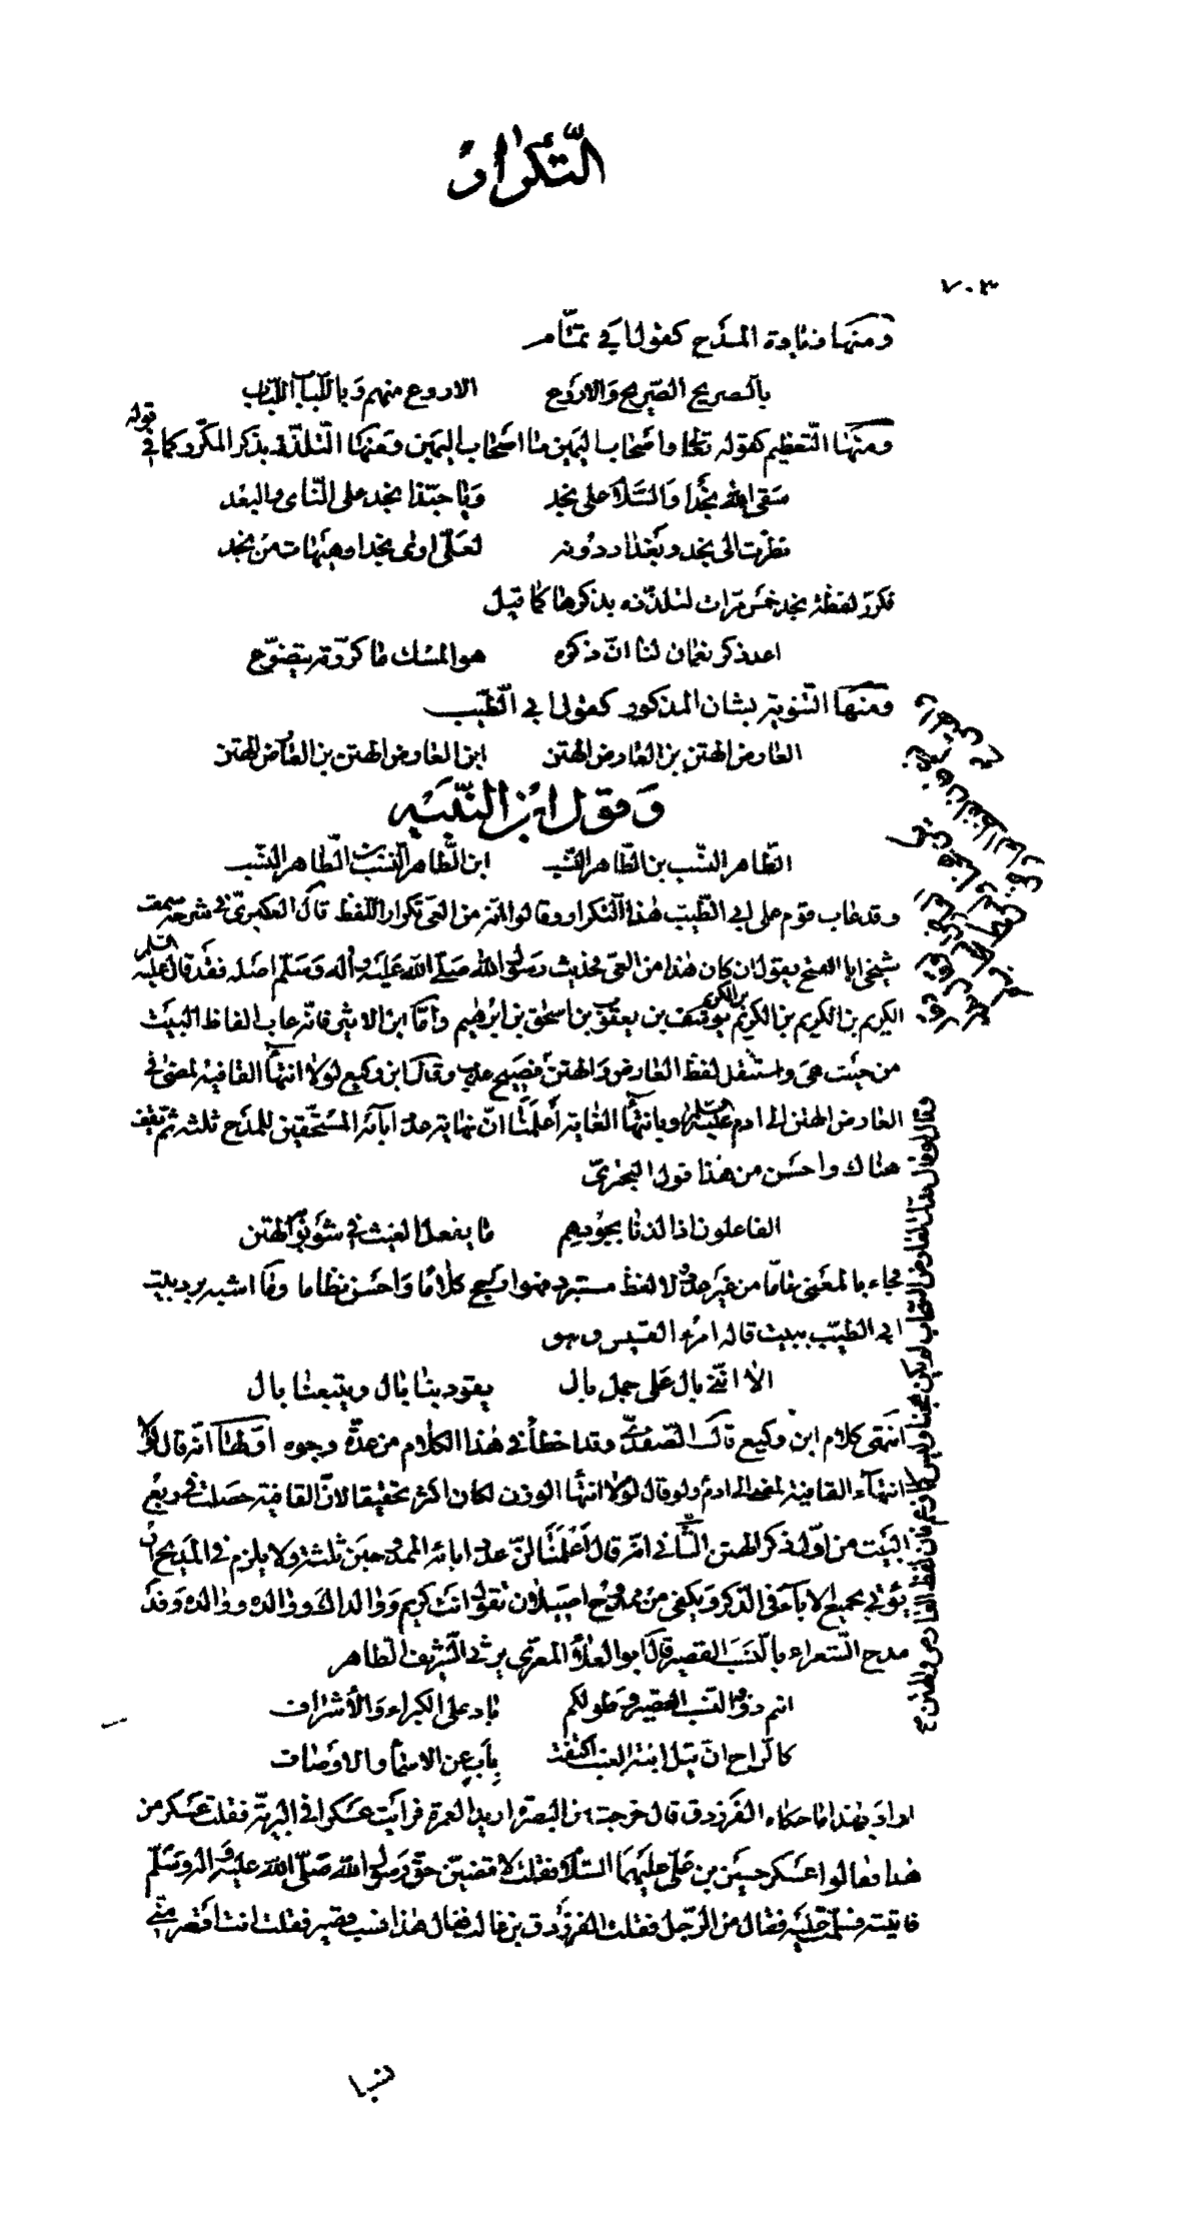 التَّكرارُ
٧٠٣
ومنها زيادة المدح كقول ابي تمّام
بالصريح الصّريح والاروع الاروع منهم وباللّباب اللّباب
ومنها التّعظيم كقوله تعالى واصحاب اليمين ما اصحاب اليمين ومنها التّلذّذ بذكر المكرّر كما في قوله
سقى الله نجدا والسّلام على نجد ويا حبّذا نجد على النّاى والبعد
نظرت الى نجد وبغداد دونه لعلّى ارى نجدا وهيهات من نجد
فكرر لفظة نجد خمس مرات لتلذّذه بذكرها كما قيل
اعد ذكر نعمان لنا انّ ذكره هو المسك ما كرّرته يتضوّع
ومنها التّنويه بشان المذكور كقول ابي الطّيّب
العارض الهتن بن العارض الهتن ابن العارض الهتن بن العارض الهتن
وقول ابن النّبيه
الطّاهر النّسب بن الطّاهر النّسب ابن الطّاهر النّسب بن الطّاهر النّسب
وقد عاب قوم على ابي الطّيب هذا التّكرار وقالوا انّه من العىّ تكرار اللّفظ قال العكبرىّ في شرحه سمعت
شيخي ابا الفتح يقول ان كان هذا من العىّ فحديث رسول الله صلّى الله عليه وآله وسلّم اصله فقد قال عليه السّلام
الكريم بن الكريم بن الكريم بن الكريم يوسف بن يعقوب بن اسحق بن ابرهيم وامّا ابن الاثير فانّه عاب الفاظ البيت
من حيث هى واستثقل لفظ العارض والهتن فصيح عذب وقال ابن وكيع لولا انتهاء القافية لمضى في
العارض الهتن الى ادم عليه السلام وبانتهاء الغاية أعلمنا انّ نهاية عدد آبائه المستحقّين للمدح ثلثة ثم يقف
هناك واحسن من هذا قول البحترىّ
الفاعلون اذا لذنا بجودهم ما يفعل الغيث في شؤبوبه الهتن
فجاء بالمعنى تامّا من غير حشو ولا لفظ مستبرد فهو ارجح كلاما واحسن نظاما وما اشبه برد بيت
ابى الطيّب ببيت قاله امرء القيس وهو
الا انّنى بال على جمل بال يقود بنا بال ويتبعنا بال
انتهى كلام ابن وكيع قال الصّفدىّ وقد اخطأ في هذا الكلام من عدّة وجوه اوّلها انه قال لولا
انتهاء القافية لمضى الى ادم ولو قال لولا انتهاء الوزن لكان اكثر تحقيقا لانّ القافية حصلت في ربع
البيت من اوّل ذكر الهتن الثّانى انّه قال اعلمنا انّ عدد ابائه الممدوحين ثلثة ولا يلزم في المديح ان
يؤتى بجميع الاباء في الذّكر ويكفى من ممدوح اصيل ان تقول انت كريم ووالدك ووالده ووالده وقد
مدح الشعراء بالنّسب القصير قال ابو العلاء المعرّى يرثى الشّريف الطاهر
انتم ذوو النّسب القصير وطولكم باد على الكبراء والأشراف
كالراح ان قيل ابنة العنب اكتفت بأب عن الاسماء والاوصاف
اراد بهذا ما حكاه الفرزدق قال خرجت من البصرة اريد العمرة فرايت عسكرا في البريّة فقلت عسكر من
هذا فقالوا عسكر حسين بن علىّ عليهما السّلام فقلت لاقضينّ حقّ رسول الله صلّى الله عليه وآله وسلّم
فاتيته فسلّمت عليه فقال من الرّجل فقلت الفرزدق بن غالب فقال هذا نسب قصير فقلت انت اقصر منّى
نسبا